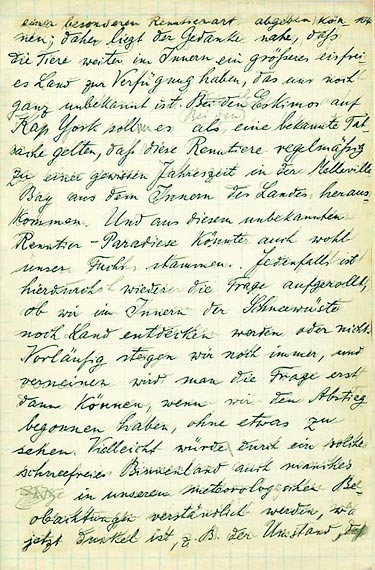 einer besonderen Renntierart abgeben kön
nen; daher liegt der Gedanke nahe, daß
die Tiere weiter im Innern ein größeres eisfrei-
es Land zur Verfügung haben, das uns noch
ganz unbekannt ist. Bei den Eskimos auf
Kap York soll es als eine bekannte Tat-
sache gelten, daß diese Renntiere regelmäßig
zu einer gewissen Jahreszeit in der Melville
Bay aus dem Innern des Landes heraus-
kommen. Und aus diesem unbekannten
Renntier-Paradiese könnte auch wohl
unser Fuchs stammen. Jedenfalls ist
hierdurch wieder die Frage aufgerollt,
ob wir im Innern der Schneewüste
noch Land entdecken werden oder nicht.
Vorläufig steigen wir noch immer, und
verneinen wird man die Frage erst
dann können, wenn wir den Abstieg
begonnen haben, ohne etwas zu
sehen. Vielleicht würde durch ein solches
schneefreies Binnenland auch manches
in unseren meteorologischen Be-
obachtungen verständlich werden, was
jetzt dunkel ist, z. B. der Umstand, daß